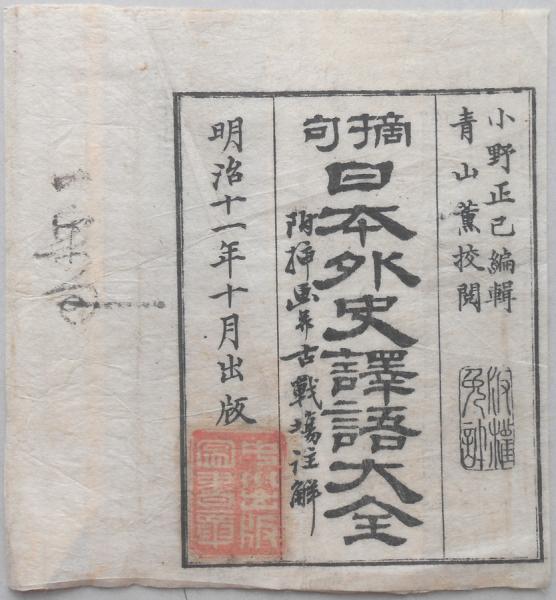 小野正己編輯
青山薫校閲
版権免許
摘句
日本外史譯語大全
附挿画并古戰場註解
明治十一年十月出版